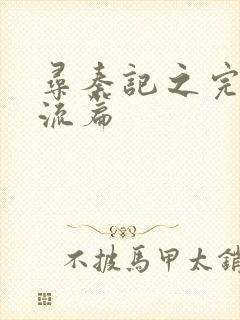 尋秦記之完
流篇
不披馬甲太銷